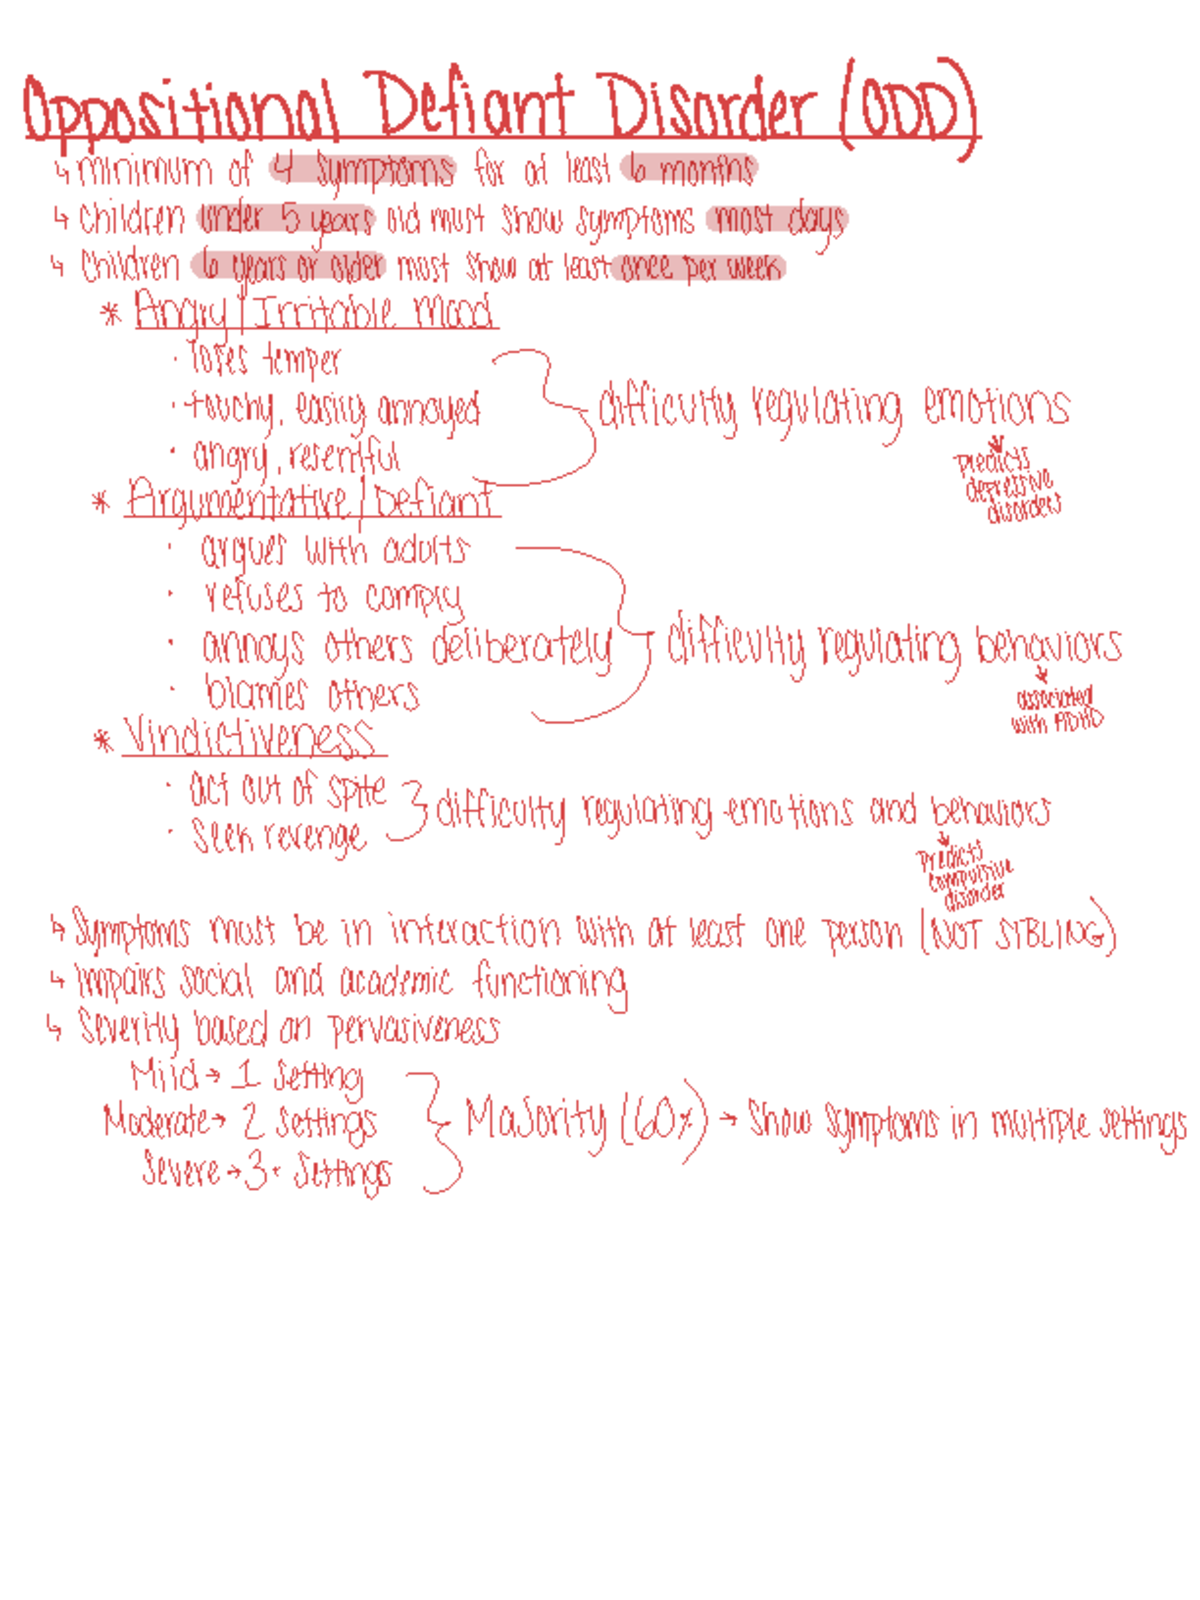 Oppositional Defiant Disorder (ODD)
↳ minimum of 4 symptoms for at least 6 months
↳ Children under 5 years old must show symptoms most days
↳ Children 6 years or older must show at least once per week
* Angry/Irritable Mood
· loses temper
· touchy, easily annoyed
· angry, resentful
difficulty regulating emotions
predicts
depressive
disorders
* Argumentative/Defiant
· argues with adults
· refuses to comply
· annoys others deliberately
· blames others
difficulty regulating behaviors
associated
with ADHD
* Vindictiveness
· act out of spite
· Seek revenge
difficulty regulating emotions and behaviors
predicts
compulsive
disorder
↳ Symptoms must be in interaction with at least one person (NOT SIBLING)
↳ Impairs social and academic functioning
↳ Severity based on pervasiveness
Mild → 1 Setting
Moderate → 2 Settings
Severe → 3+ Settings
Majority (60%) → Show symptoms in multiple settings